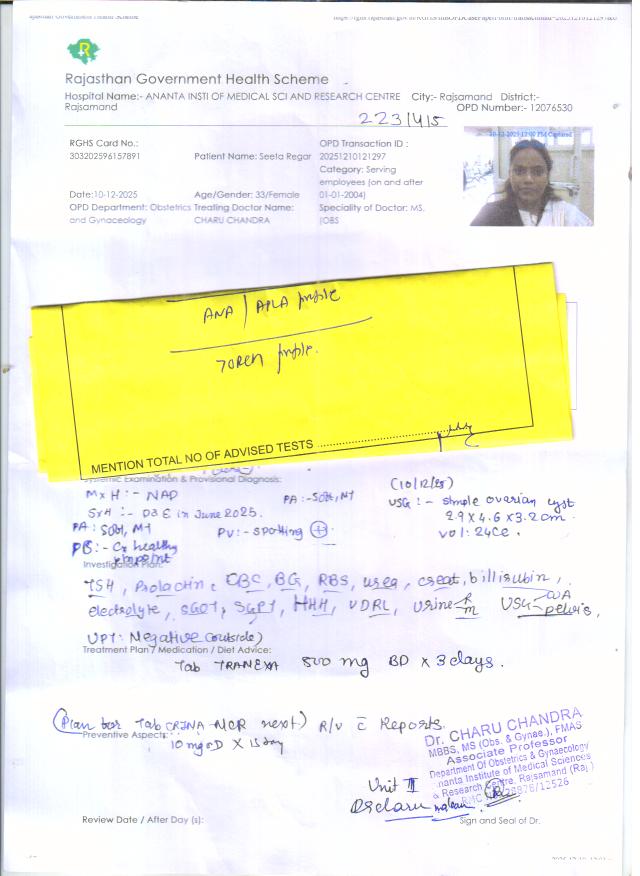 Rajasthan Government Health Scheme
Hospital Name:- ANANTA INSTI OF MEDICAL SCI AND RESEARCH CENTRE City:- Rajsamand District:- Rajsamand
OPD Number:- 12076530
223145
RGHS Card No.: 303202596157891
Patient Name: Seeta Regar
OPD Transaction ID : 20251210121297
Category: Serving employees (on and after 01-01-2004)
10-12-2025 12:00 PM Captured
Date:10-12-2025
Age/Gender: 33/Female
OPD Department: Obstetrics and Gynaceology
Treating Doctor Name: CHARU CHANDRA
Speciality of Doctor: MS, (OBS
ANA / APLA profile
TORCH profile.
MENTION TOTAL NO OF ADVISED TESTS
Systemic Examination & Provisional Diagnosis:
(10/12/25)
MxH :- NAD
PA :- Soft, NT
USG :- Simple ovarian cyst
SxH :- D&E in June 2025.
2.9 x 4.6 x 3.2 cm.
PA: Soft, NT
PV :- Spotting (+)
vol: 24cc.
PS :- Cx healthy
Investigation Plan:
TSH, Prolactin, CBC, BG, RBS, urea, creat, billirubin,
electrolyte, SGOT, SGPT, HHH, VDRL, Urine R/M USG pelvis,
UPT: Negative (outside)
Treatment Plan / Medication / Diet Advice:
Tab TRANEXA 500 mg BD x 3 days.
(Plan for Tab CRINA-NCR next) R/v c̄ Reports.
Preventive Aspects:
10 mg OD X 15 day
Dr. CHARU CHANDRA
MBBS, MS (Obs. & Gynae.), FMAS
Associate Professor
Department Of Obstetrics & Gynaecology
Ananta Institute of Medical Sciences
& Research Centre, Rajsamand (Raj.)
Unit II
Review Date / After Day (s):
Sign and Seal of Dr.